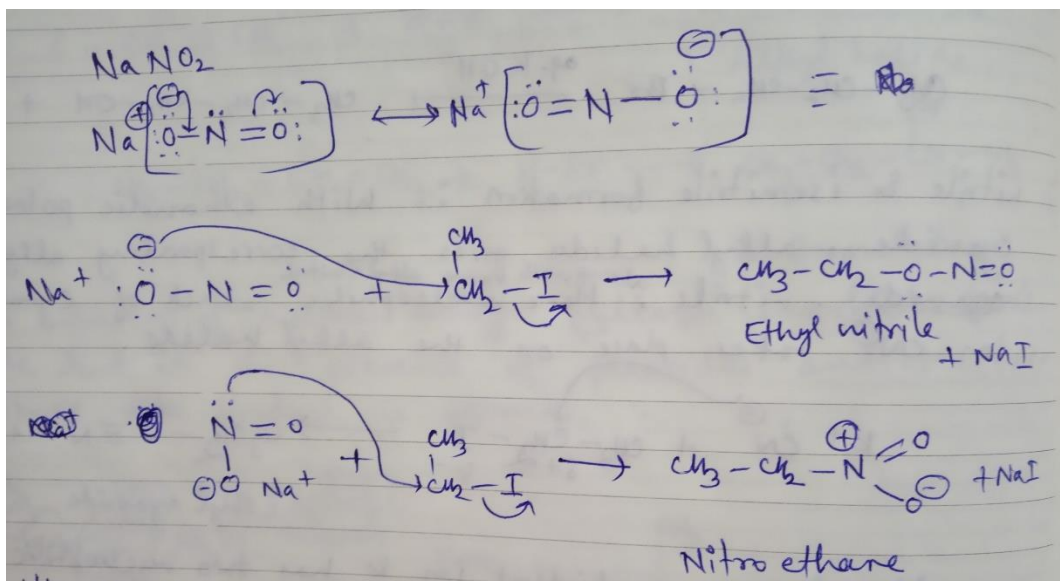 NaNO2
Na⊕ [⊖:Ö–N̈=Ö:] ⟷ Na+ [:Ö=N–Ö:⊖] ≡
Na+ ⊖:Ö–N=Ö + CH3 CH2–I ⟶ CH3–CH2–Ö–N=Ö
Ethyl nitrile
+ NaI
N̈=O
⊖O Na+ + CH3 CH2–I ⟶ CH3–CH2–N⊕ =O O⊖ + NaI
Nitro ethane